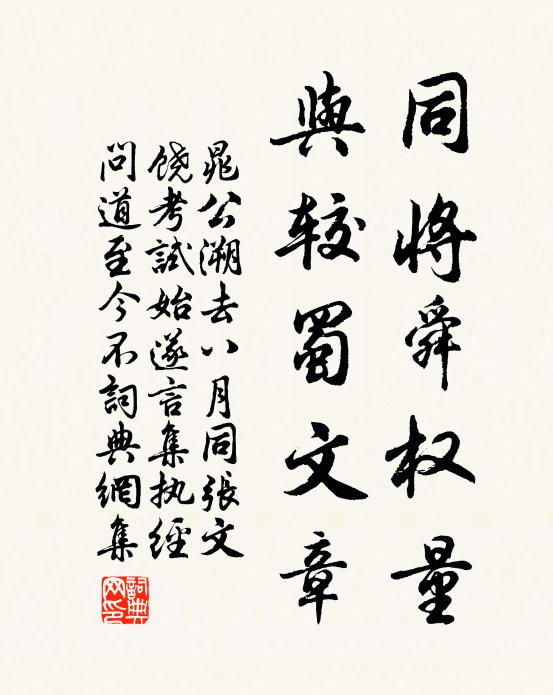 同将舜权量
與较蜀文章
晁公溯去八月同張文
饶考試始遂言集执經
問道至今不詞典網集
詞典網印